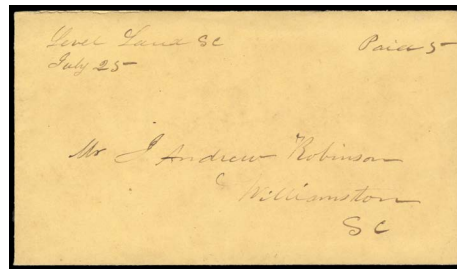 Level Land SC
Paid 5
July 25
Mr J Andrew Robinson
Williamston
S C